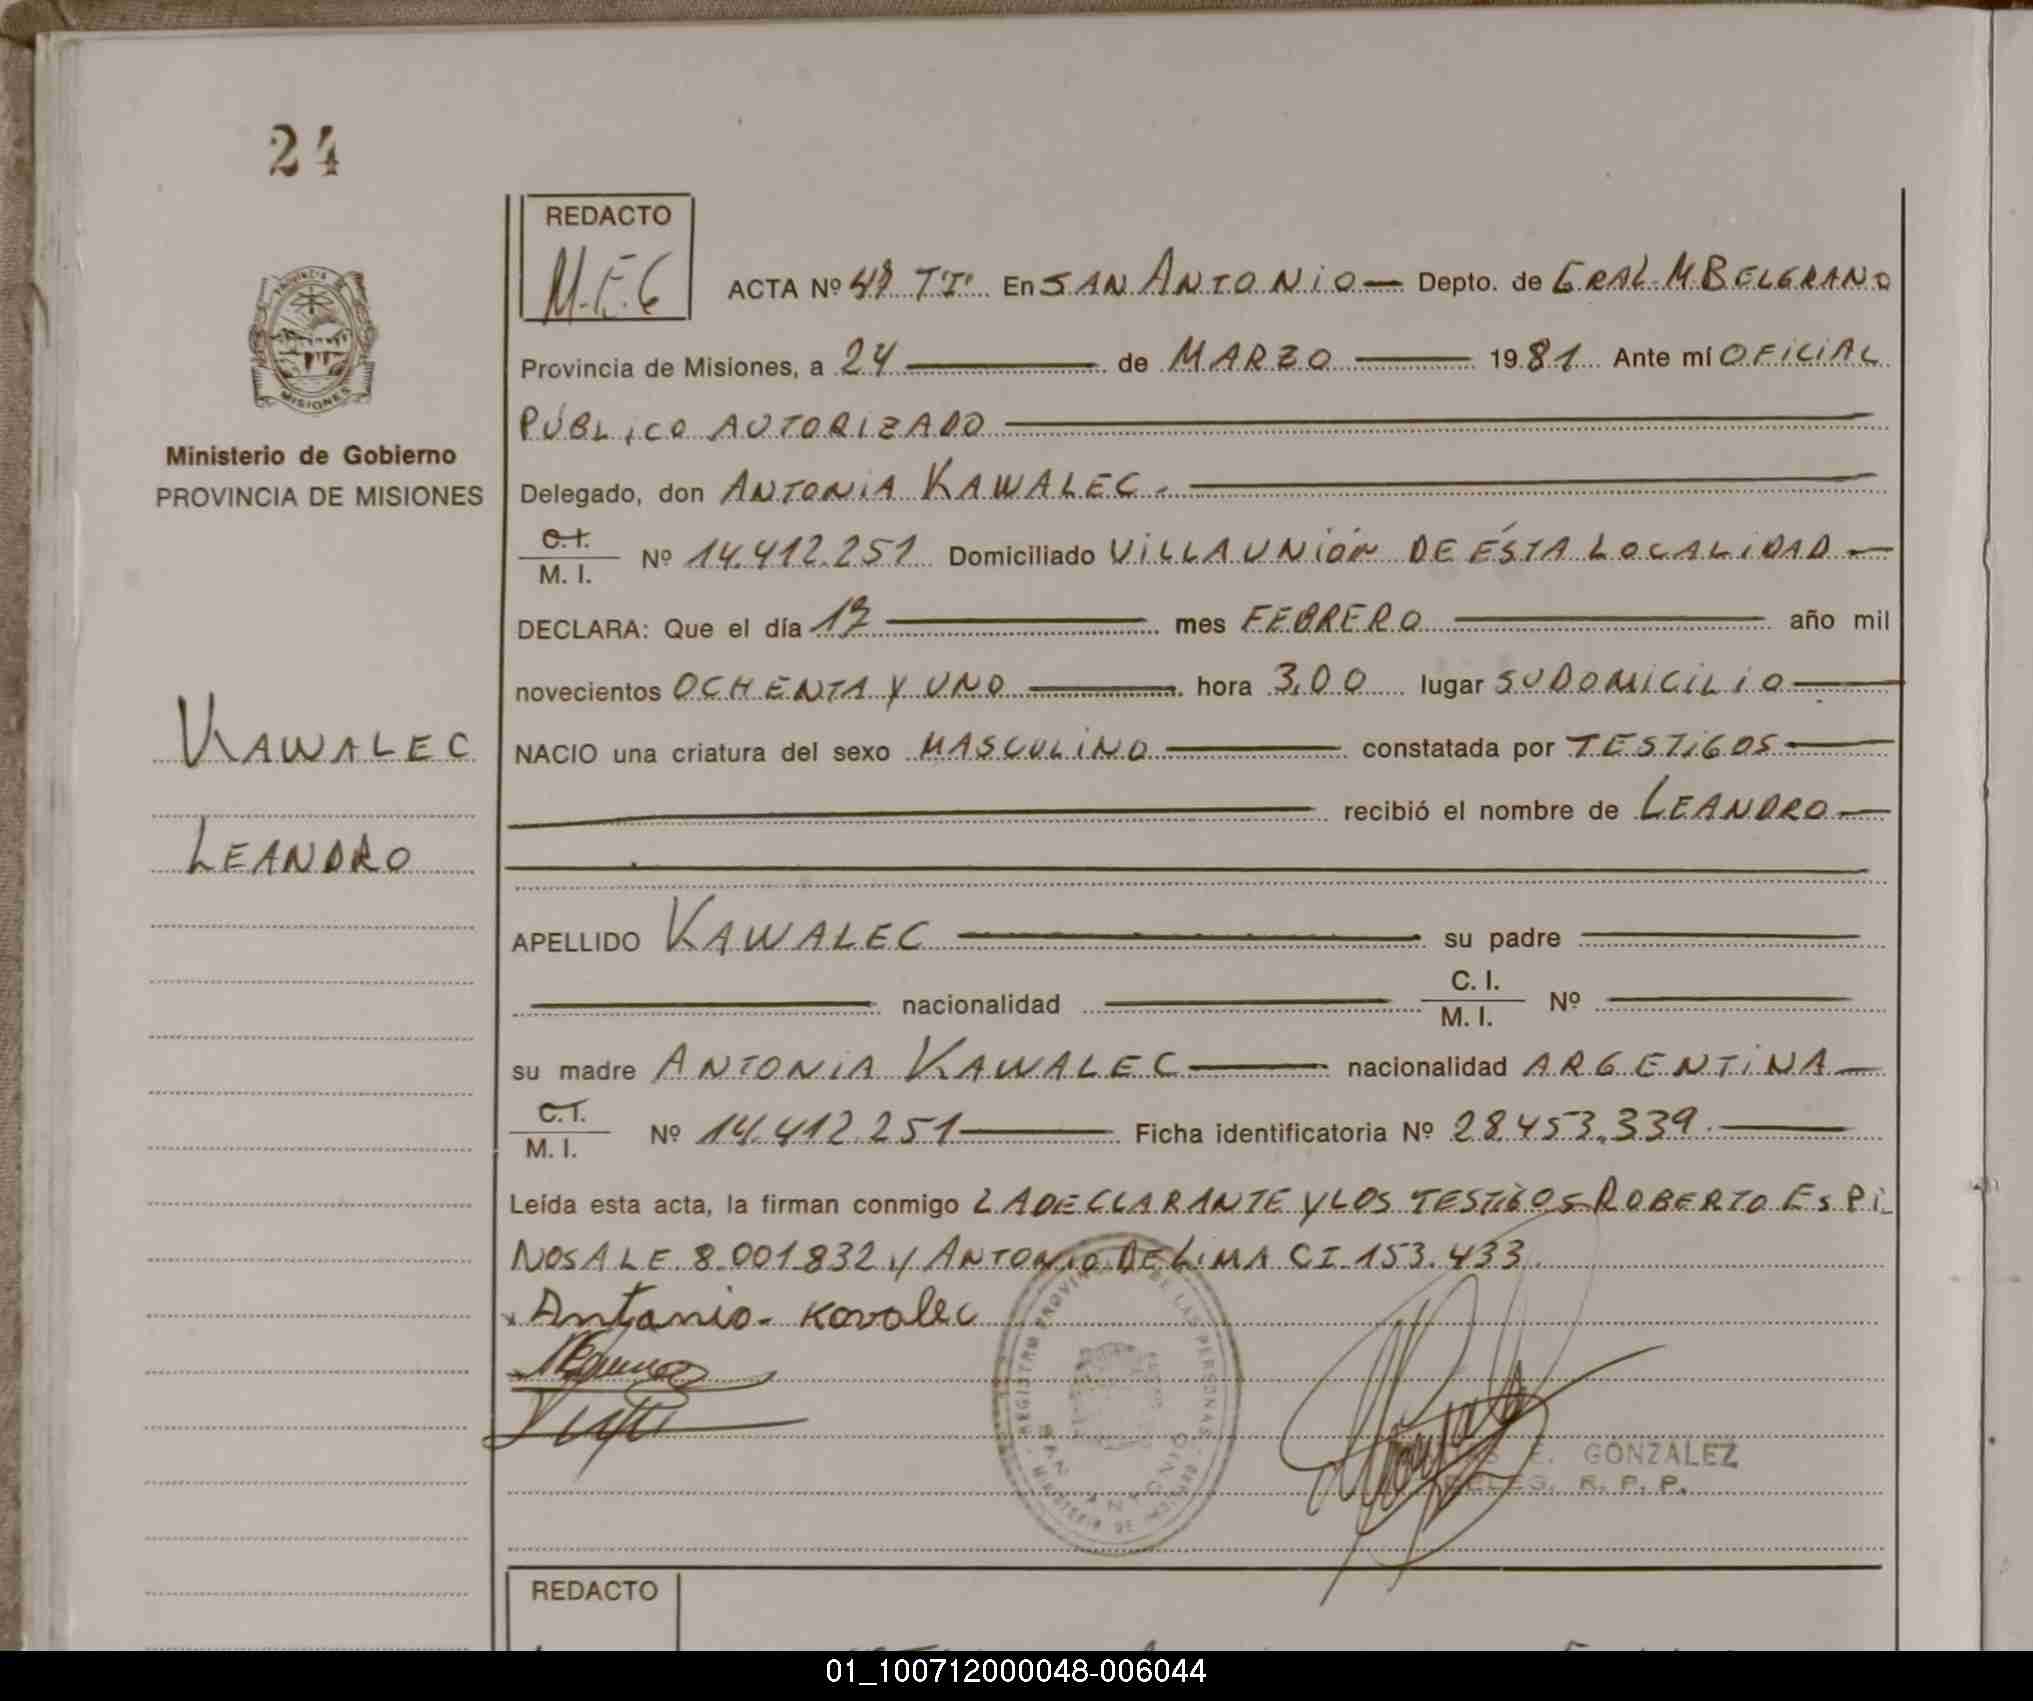 24
REDACTO
M.E.G
ACTA Nº 47 "T" En SAN ANTONIO Depto. de GRAL. M. BELGRANO
Provincia de Misiones, a 24 de MARZO 1981 Ante mí OFICIAL
PÚBLICO AUTORIZADO
PROVINCIA
MISIONES
Ministerio de Gobierno
PROVINCIA DE MISIONES
Delegado, don ANTONIA KAWALEC.
C.I.
M. I. Nº 14.412.251 Domiciliado VILLA UNIÓN DE ÉSTA LOCALIDAD
DECLARA: Que el día mes FEBRERO año mil
novecientos OCHENTA Y UNO hora 3,00 lugar SU DOMICILIO
KAWALEC
NACIO una criatura del sexo MASCULINO constatada por TESTIGOS
recibió el nombre de LEANDRO
LEANDRO
APELLIDO KAWALEC su padre
nacionalidad C. I.
M. I. Nº
su madre ANTONIA KAWALEC nacionalidad ARGENTINA
C.I.
M. I. Nº 14.412.251 Ficha identificatoria Nº 28.453.339.
Leída esta acta, la firman conmigo LA DECLARANTE Y LOS TESTIGOS ROBERTO ESPI
NOSA LE 8.001.832 y ANTONIO DE LIMA CI 153.433.
Antania. Kovalec
REGISTRO PROVINCIAL DE LAS PERSONAS
SAN ANTONIO
MINISTERIO DE
E. GONZALEZ
DELEG. R. P. P.
REDACTO
01_100712000048-006044